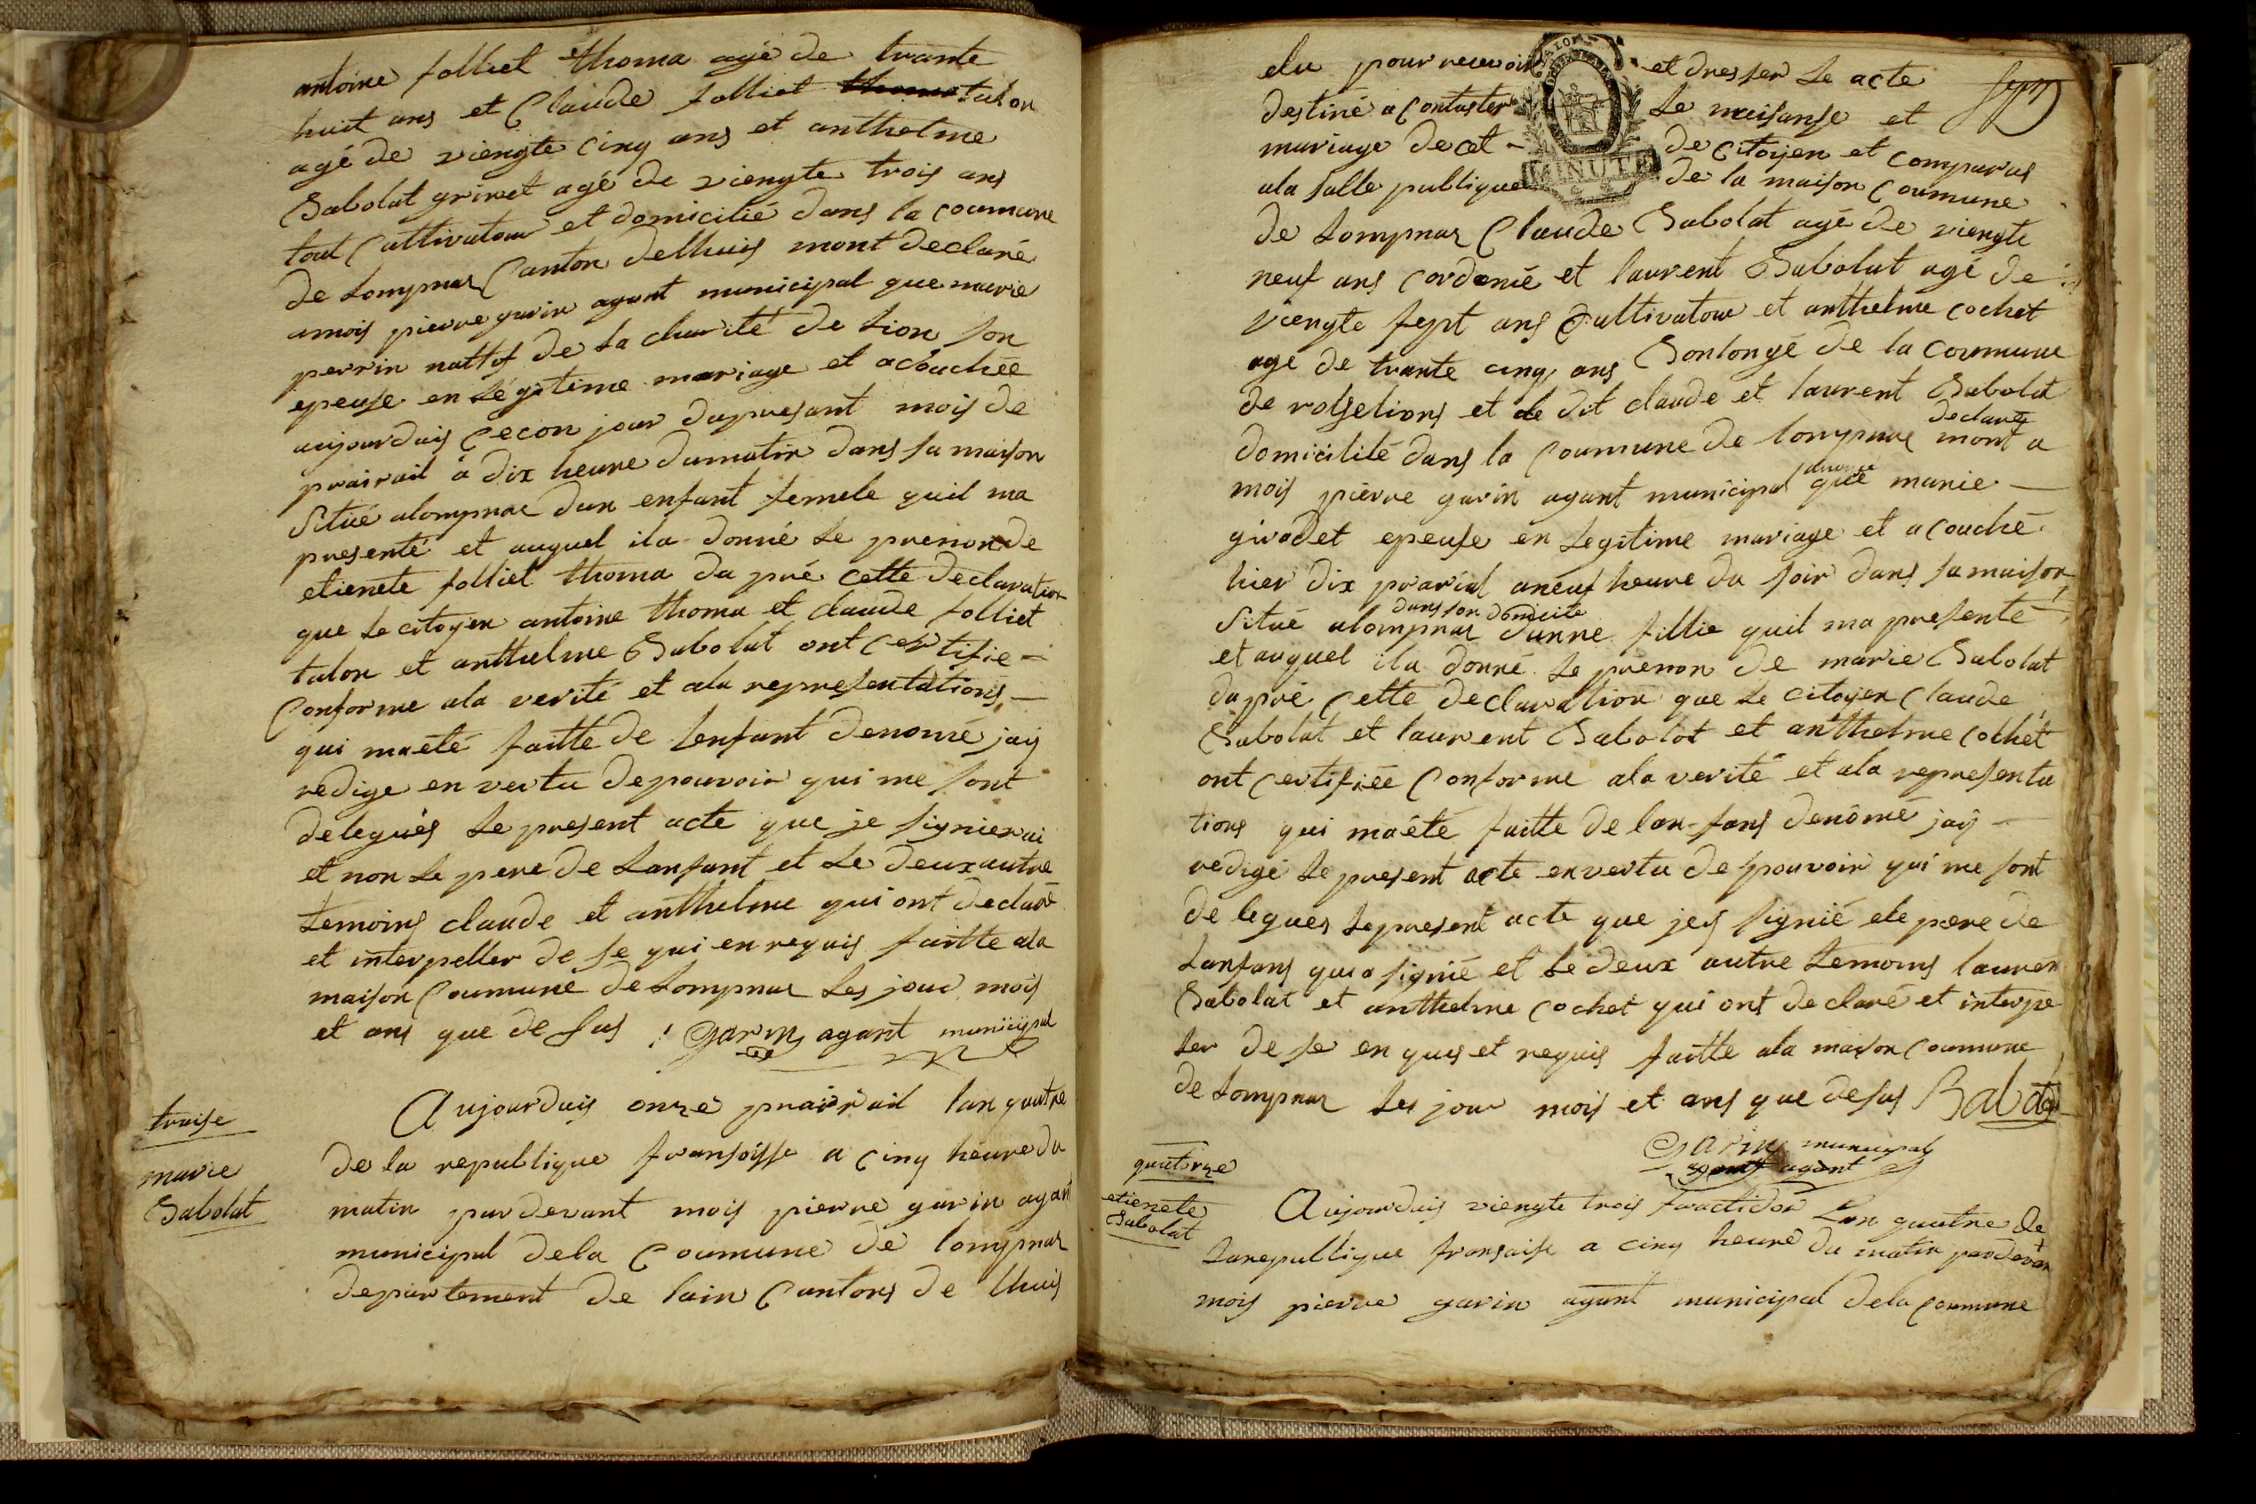 antoine folliet thoma agé de trante
huit ans et Claude folliet thoma talon
agé de viengte cinq ans et anthelme
Babolat grinet agé de viengte trois ans
tout Cultivatour et domicilié dans la coumune
de Lompnas Canton delhuis mont declaré
amois pierre garin agant municipal que marie
perrin nattif de La charité de Lion son
epeuse en Légitime mariage et acouchée
aujourduis Cecon jour dupresant mois de
prairail à dix heure dumatin dans sa maison
Situé alompnas dun enfant femele quil ma
presenté et auquel ila donné Le prenon de
etienete folliet thoma da pré cette declaration
que Le citoyen antoine thoma et claude folliet
talon et anthelme Babolat ont Certifie =
Conforme ala verité et ala representations —
qui maété faitte de Lenfant denomé jaij
redige en vertu depouvoir qui me sont
delegués Le present acte que je signierai
et non Le pere de Lanfant et Le deux autre
temoins claude et anthelme qui ont declaré
et interpeller de se qui en requis faitte ala
maison Coumune de Lompnas Les jour mois
et ans que de sus garin agant municipal
truise
marie
Babolat
Aujourduis onze prairail lan quatre
de la republique fransoisse a Cinq heure du
matin pardevant mois pierre garin agant
municipal dela Coumune de lompnas
departement de lain Cantons de lhuis
elu pour recevoir et dresser Le acte
destiné a Contaster Le neisanse et
mariage de cet – de Citoyen et comparus
ala salle publique de la maison Coumune
MINUTE
de Lompnas Claude Babolat agé de viengte
neuf ans Cordonié et laurent Babolat agé de
viengte sept ans Cultivatour et anthelme cochet
agé de trante cinq ans Bonlongé de la coumune
de et le dit claude et laurent Babolat
declaré
domicilité dans la Coumune de Lompnas mont a
mois pierre garin agant municipal que marie —
girodet epeuse en Legitime mariage et acouché
hier dix prarial aneuf heure du soir dans sa maison
dans son domicile
Situé alompnas dunne fillie quil ma presenté
et auquel ila donné Le prenon de marie Babolat
dapré Cette declaration que Le citoyen Claude
Babolat et laurent Babolat et anthelme cochet
ont Certifiée Conforme ala verité et ala representa
tions qui maété faitte de lan-fans denômé jaij —
redigé Le present acte en vertu de pouvoir qui me sont
de legues Le present acte que jeij signié ele pere de
Lanfans qui a signié et Le deux autre temoins lauren
Babolat et anthelme cochet qui ont declaré et interpe
Ler de se en ques et requis faitte ala maison Coumune
de Lompnas Les jour mois et ans que desus Babolat
Garin municipal
agant
quatorze
etienete
Babolat
Aujourduis viengte trois fructidor Lan quatre de
Larepublique fransaise a cinq heure du matin pardevan
mois pierre garin agant municipal dela Coumune